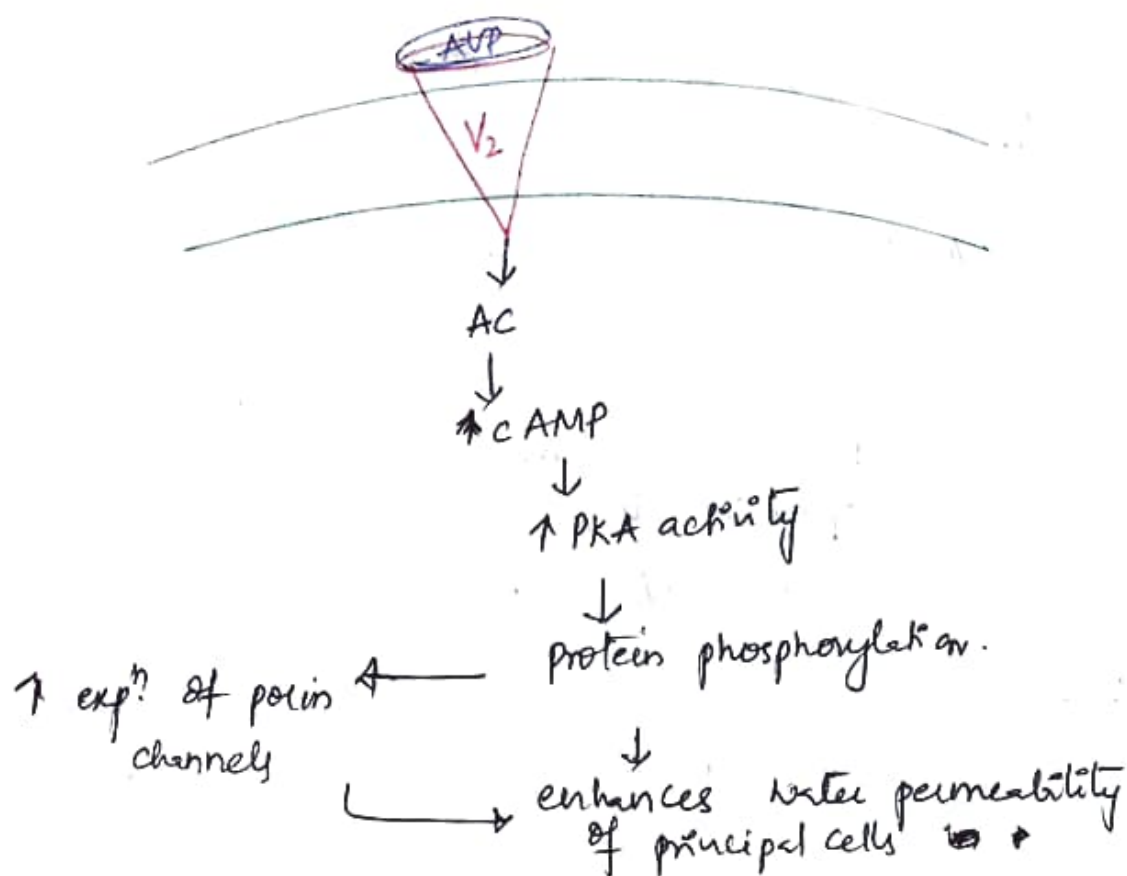 AVP
V2
AC
↑ cAMP
↑ PKA activity
protein phosphorylation.
↑ expⁿ. of porin
channels
enhances water permeability
of principal cells